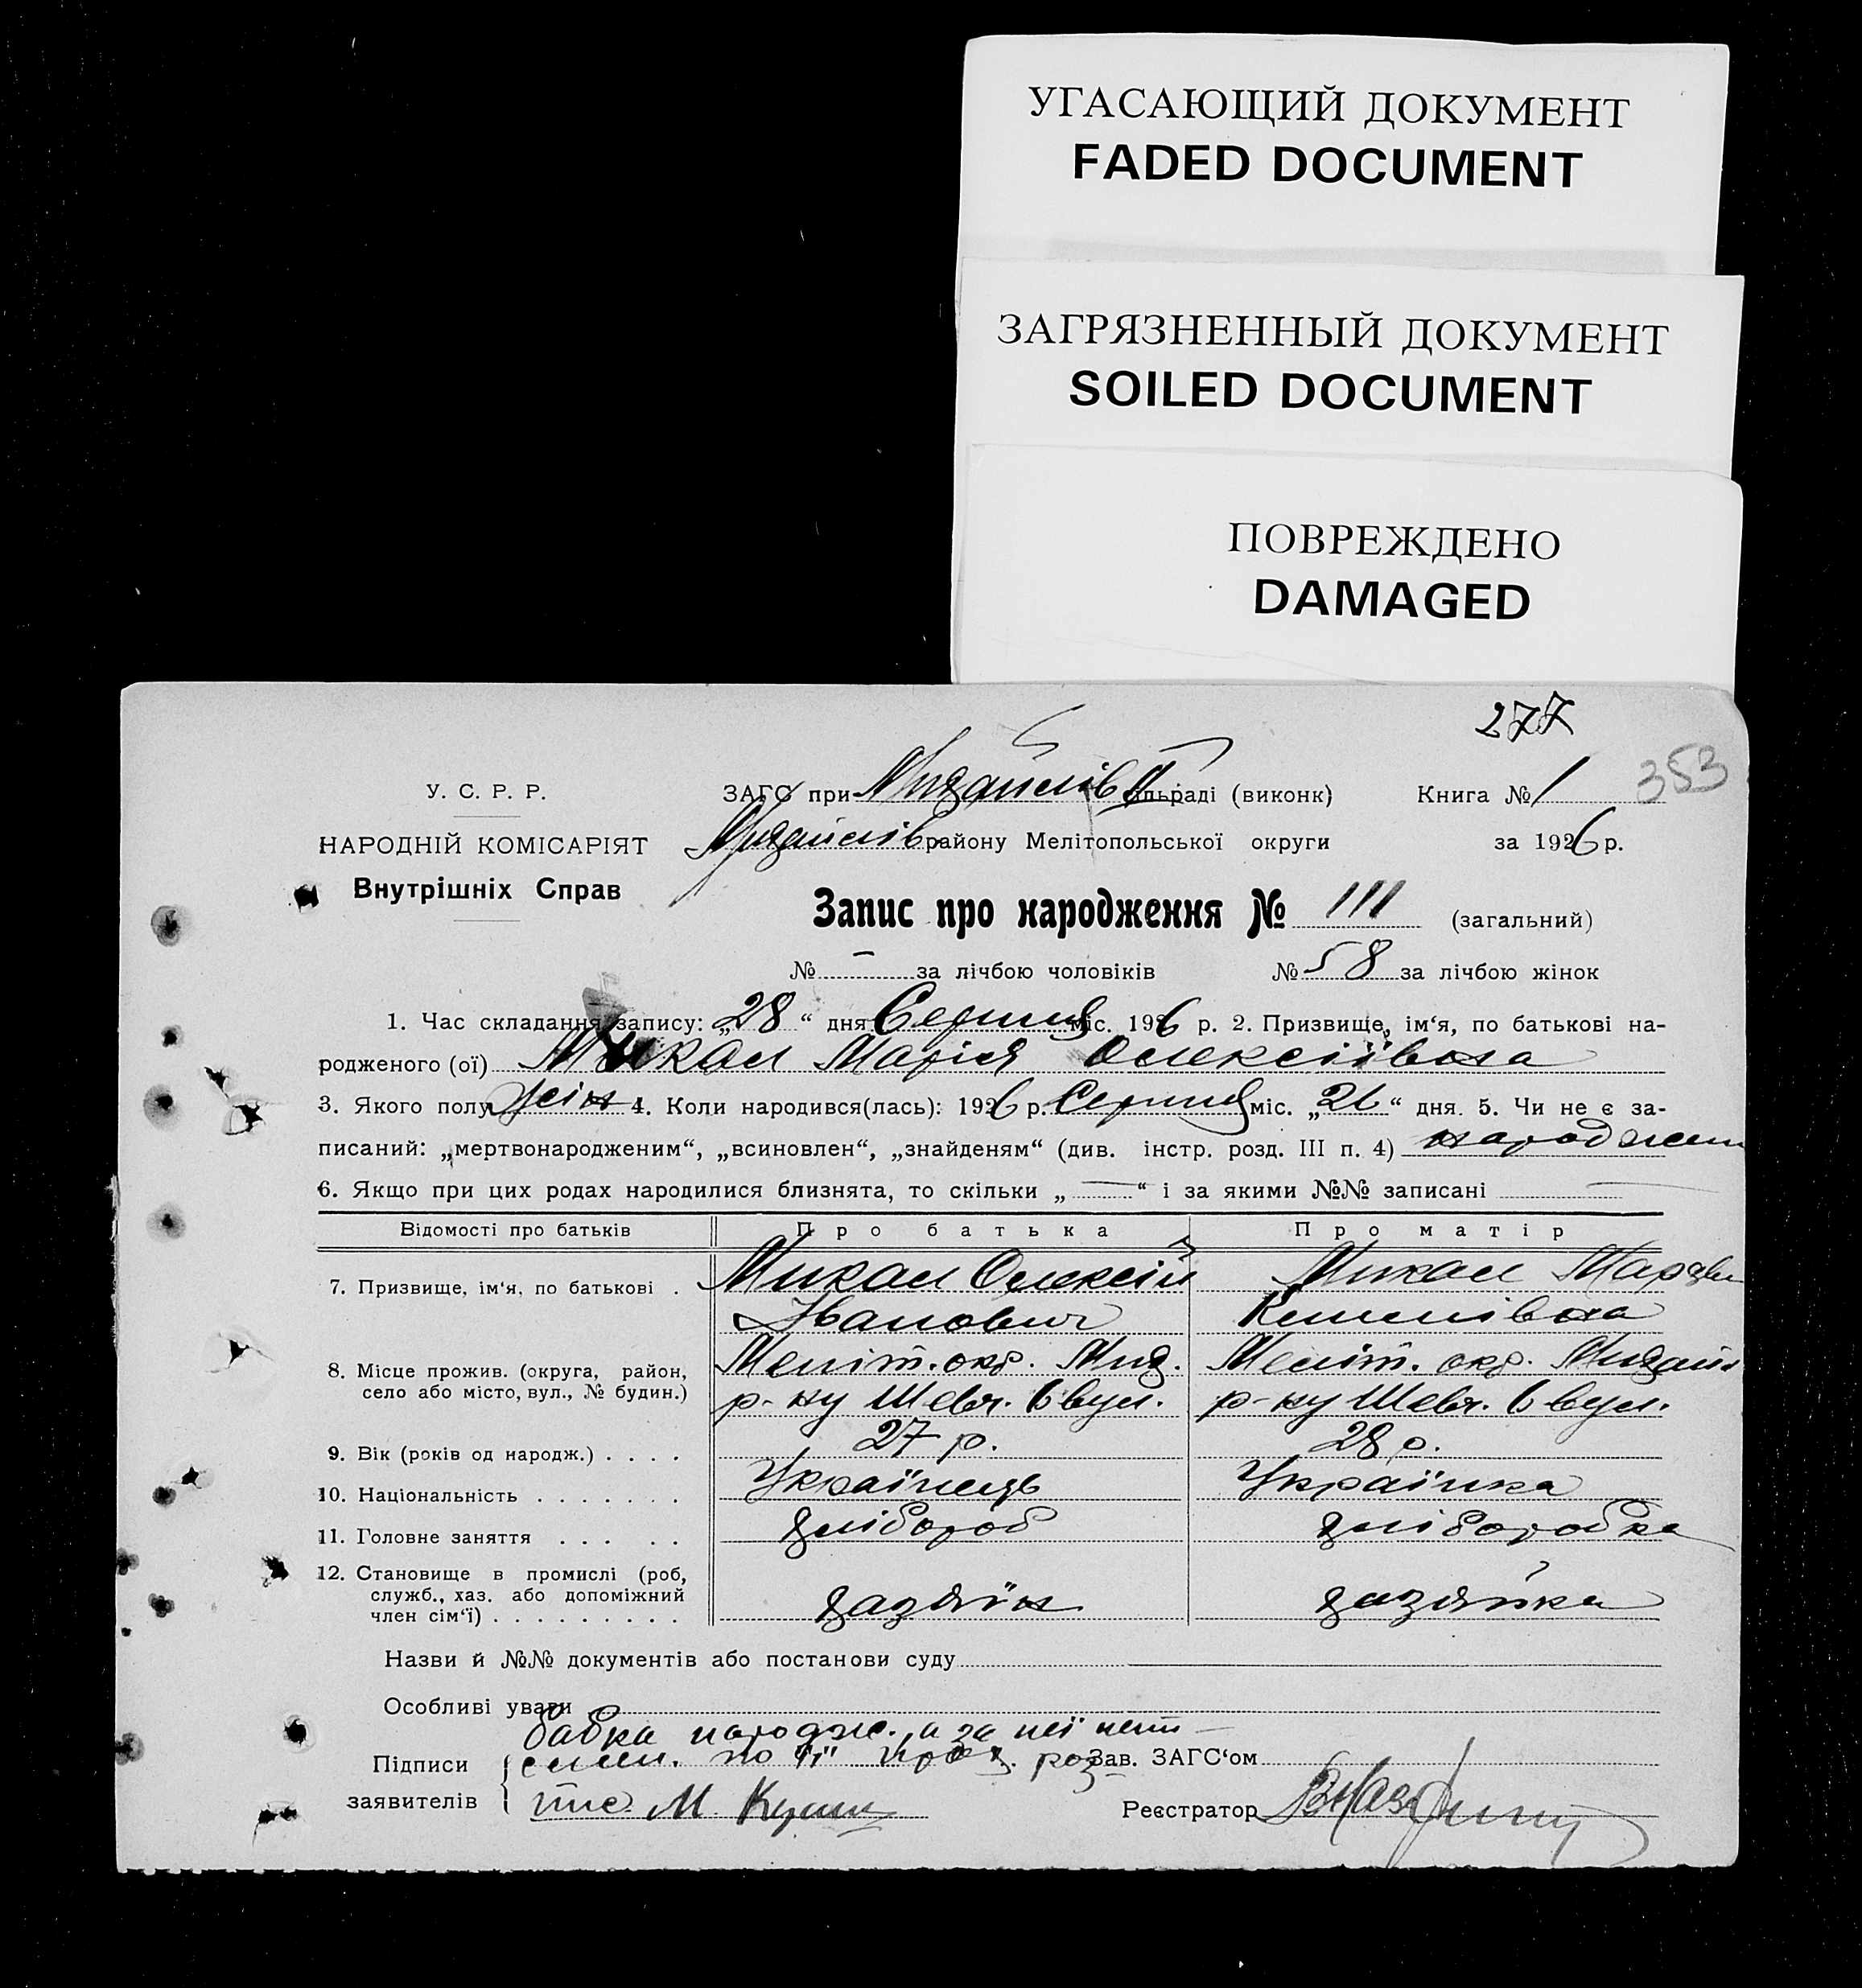 УГАСАЮЩИЙ ДОКУМЕНТ
FADED DOCUMENT
ЗАГРЯЗНЕННЫЙ ДОКУМЕНТ
SOILED DOCUMENT
ПОВРЕЖДЕНО
DAMAGED
277
353
У. С. Р. Р.
ЗАГС при Михайлів сільраді (виконк) Книга № 1
НАРОДНІЙ КОМІСАРІЯТ
Михайлів району Мелітопольської округи за 1926 р.
Внутрішніх Справ
Запис про народження № 111 (загальний)
№ - за лічбою чоловіків № 58 за лічбою жінок
1. Час складання запису: „28“ дня Серпня міс. 1926 р. 2. Призвище, ім‘я, по батькові на-
родженого (ої) Микал Марія Олексіївна
3. Якого полу жін 4. Коли народився(лась): 1926 р. Серпня міс. „26“ дня. 5. Чи не є за-
писаний: „мертвонародженим“, „всиновлен“, „знайденям“ (див. інстр. розд. III п. 4) народжен
6. Якщо при цих родах народилися близнята, то скільки „ — “ і за якими №№ записані —
Відомості про батьків Про батька Про матір
7. Призвище, ім‘я, по батькові . Микал Олексій Микал
Іванович
8. Місце прожив. (округа, район, Меліт. окр. Мих. Меліт. окр. Михайл
село або місто, вул., № будин.) р-ну Шевч. 6 вул. р-ну Шевч. 6 вул.
9. Вік (років од народж.) . . . . 27 р. 28 р.
10. Національність . . . . . . . Українець Українка
11. Головне заняття . . . . . хлібороб хліборобка
12. Становище в промислі (роб,
служб., хаз. або допоміжний
член сім‘ї) . . . . . . . . . хазяїн хазяйка
Назви й №№ документів або постанови суду
Особливі уваги
бабка народж. а за неї
Підписи по її розЗав. ЗАГС‘ом
заявителів М. Реєстратор